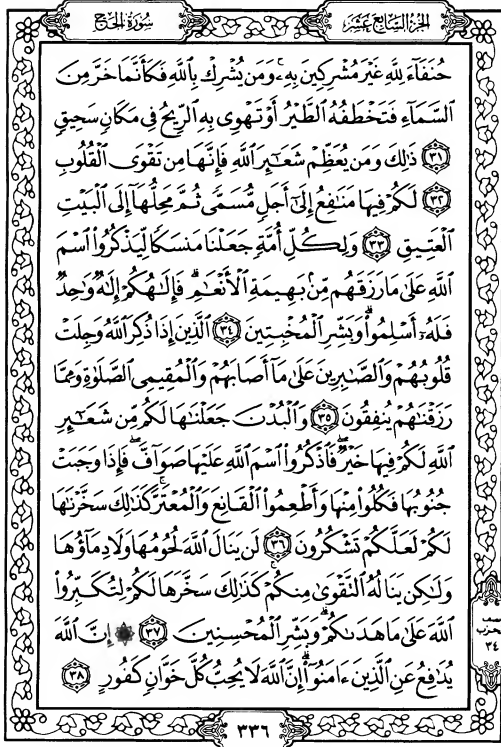 سورة الحج
الجزء السابع عشر
حُنَفَآءَ لِلَّهِ غَيْرَ مُشْرِكِينَ بِهِۦ وَمَن يُشْرِكْ بِٱللَّهِ فَكَأَنَّمَا خَرَّ مِنَ
ٱلسَّمَآءِ فَتَخْطَفُهُ ٱلطَّيْرُ أَوْ تَهْوِى بِهِ ٱلرِّيحُ فِى مَكَانٍ سَحِيقٍ
٣١ ذَٰلِكَ وَمَن يُعَظِّمْ شَعَٰٓئِرَ ٱللَّهِ فَإِنَّهَا مِن تَقْوَى ٱلْقُلُوبِ
٣٢ لَكُمْ فِيهَا مَنَٰفِعُ إِلَىٰٓ أَجَلٍ مُّسَمًّى ثُمَّ مَحِلُّهَآ إِلَى ٱلْبَيْتِ
ٱلْعَتِيقِ ٣٣ وَلِكُلِّ أُمَّةٍ جَعَلْنَا مَنسَكًا لِّيَذْكُرُوا۟ ٱسْمَ
ٱللَّهِ عَلَىٰ مَا رَزَقَهُم مِّنۢ بَهِيمَةِ ٱلْأَنْعَٰمِ ۗ فَإِلَٰهُكُمْ إِلَٰهٌ وَٰحِدٌ
فَلَهُۥٓ أَسْلِمُوا۟ ۗ وَبَشِّرِ ٱلْمُخْبِتِينَ ٣٤ ٱلَّذِينَ إِذَا ذُكِرَ ٱللَّهُ وَجِلَتْ
قُلُوبُهُمْ وَٱلصَّٰبِرِينَ عَلَىٰ مَآ أَصَابَهُمْ وَٱلْمُقِيمِى ٱلصَّلَوٰةِ وَمِمَّا
رَزَقْنَٰهُمْ يُنفِقُونَ ٣٥ وَٱلْبُدْنَ جَعَلْنَٰهَا لَكُم مِّن شَعَٰٓئِرِ
ٱللَّهِ لَكُمْ فِيهَا خَيْرٌ ۖ فَٱذْكُرُوا۟ ٱسْمَ ٱللَّهِ عَلَيْهَا صَوَآفَّ ۖ فَإِذَا وَجَبَتْ
جُنُوبُهَا فَكُلُوا۟ مِنْهَا وَأَطْعِمُوا۟ ٱلْقَانِعَ وَٱلْمُعْتَرَّ ۚ كَذَٰلِكَ سَخَّرْنَٰهَا
لَكُمْ لَعَلَّكُمْ تَشْكُرُونَ ٣٦ لَن يَنَالَ ٱللَّهَ لُحُومُهَا وَلَا دِمَآؤُهَا
وَلَٰكِن يَنَالُهُ ٱلتَّقْوَىٰ مِنكُمْ ۚ كَذَٰلِكَ سَخَّرَهَا لَكُمْ لِتُكَبِّرُوا۟
ٱللَّهَ عَلَىٰ مَا هَدَىٰكُمْ ۗ وَبَشِّرِ ٱلْمُحْسِنِينَ ٣٧ ۞ إِنَّ ٱللَّهَ
يُدَٰفِعُ عَنِ ٱلَّذِينَ ءَامَنُوٓا۟ ۗ إِنَّ ٱللَّهَ لَا يُحِبُّ كُلَّ خَوَّانٍ كَفُورٍ ٣٨
نصف
الحزب
٣٤
٣٣٦